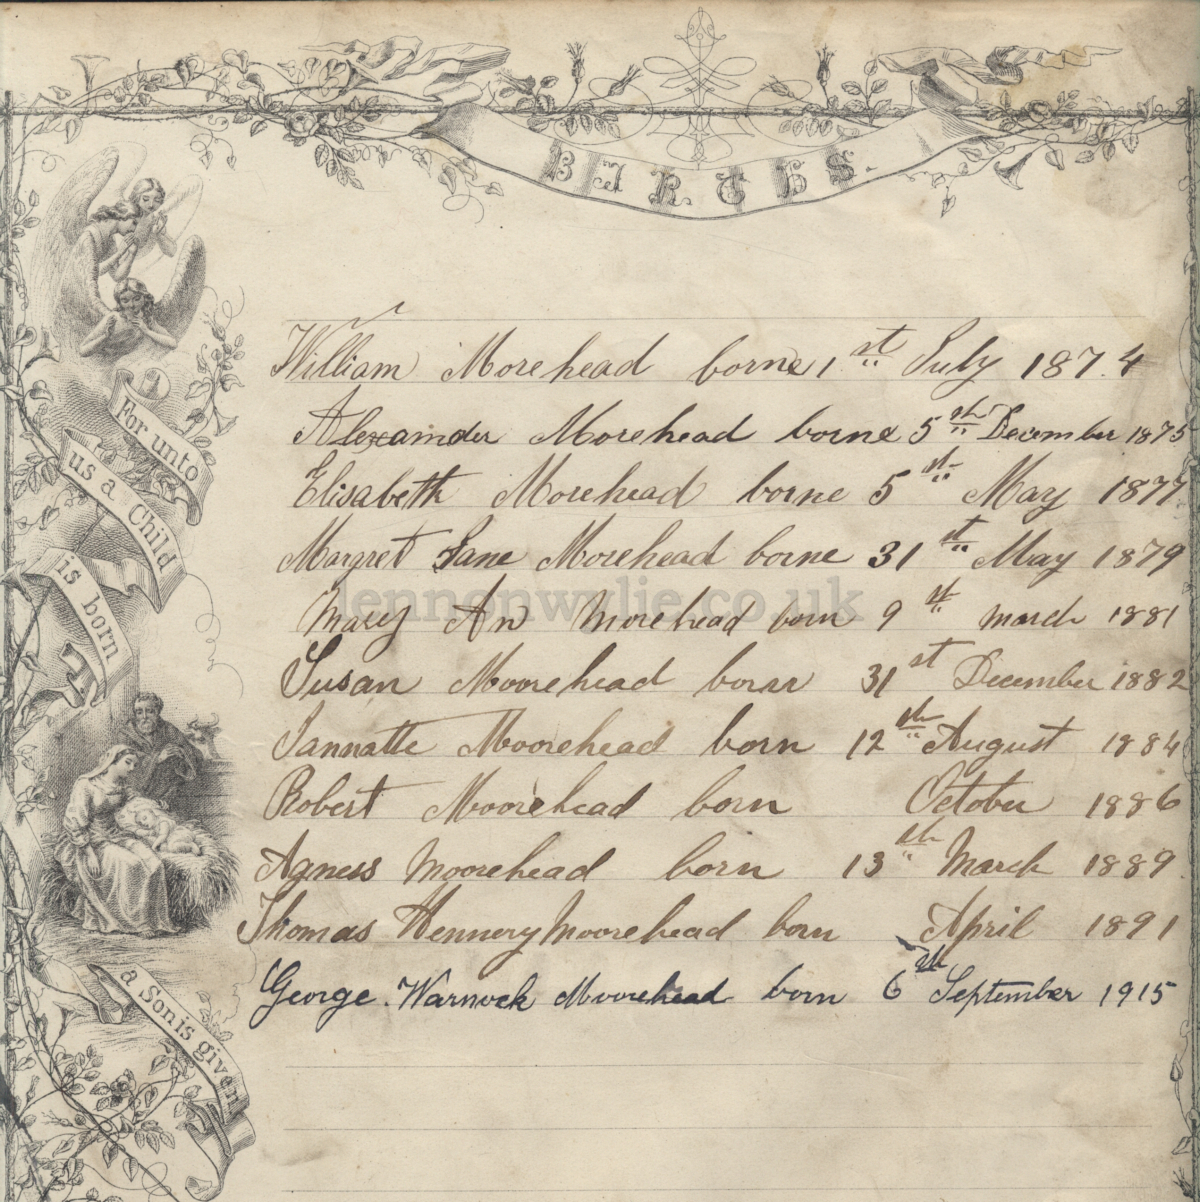 BIRTHS.
William Morehead borne 1st July 187.4
Alexamder Morehead borne 5th December 1875
Elisabeth Morehead borne 5st May 1877
Margret Jane Morehead borne 31st May 1879
Mary An Morehead born 9st march 1881
Susan Moorehead born 31st December 1882
Jannatte Moorehead born 12th August 1884
Robert Moorehead born October 1886
Agness Moorehead born 13th March 1889
Thomas Hennery Moorehead born April 1891
George. Warnock Moorehead born 6th September 1915
For unto
us a Child
is born
a Son is given
lennonwylie.co.uk